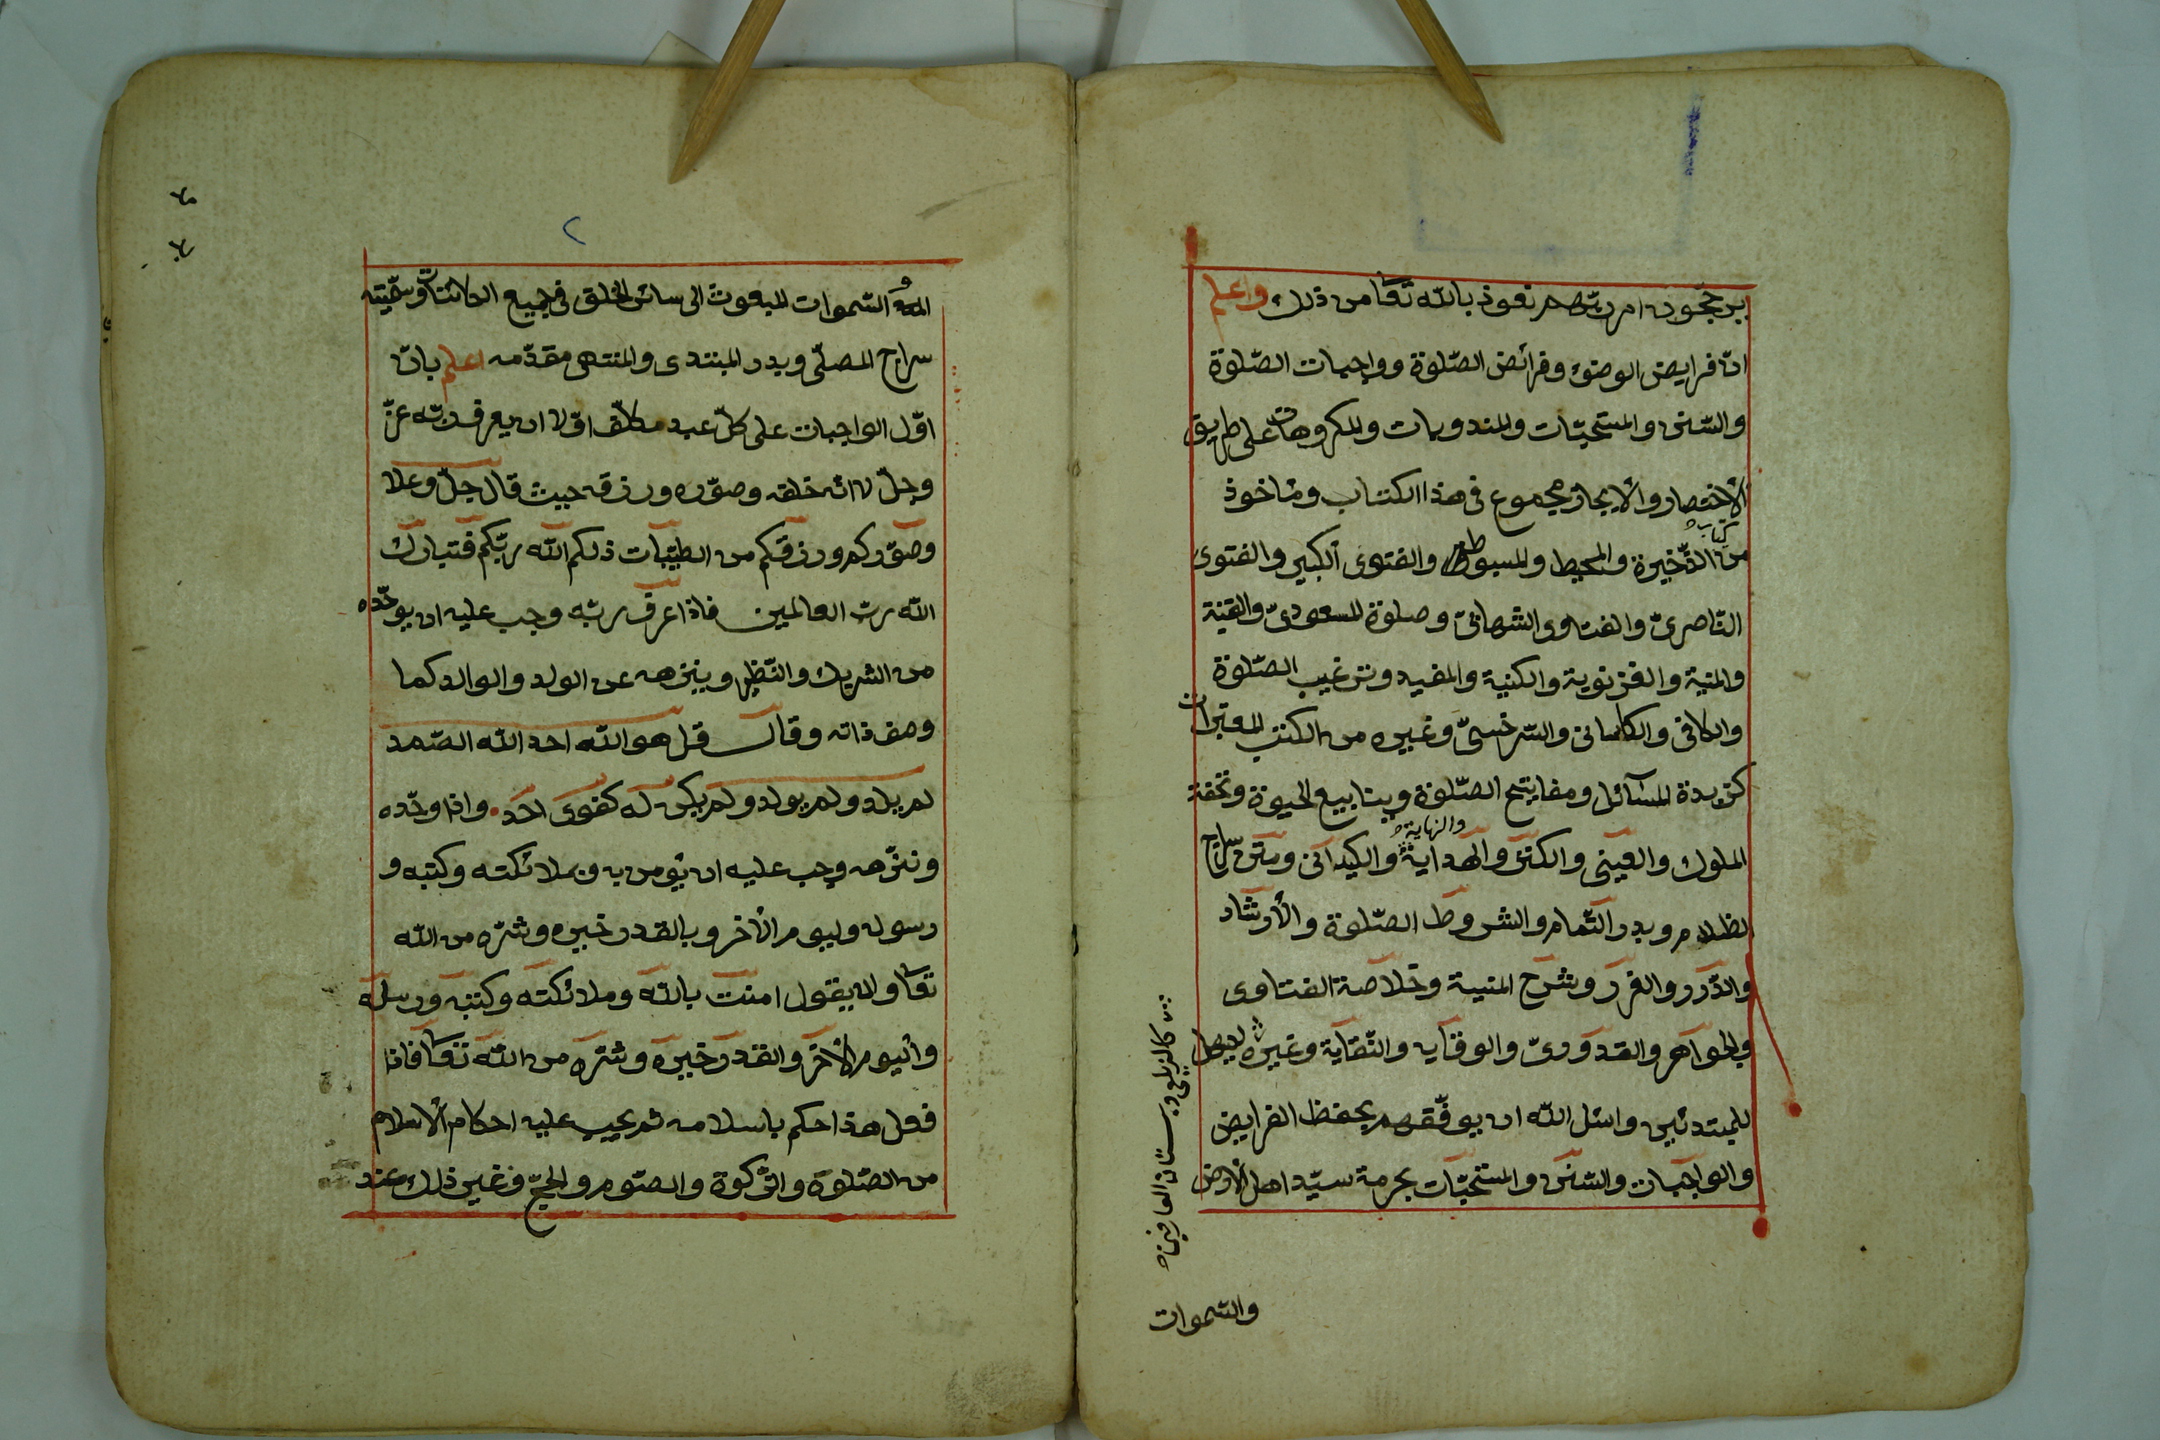 يرحجون امر ربهم نعوذ بالله تعا من ذلك واعلم
انّ فرايض الوضوء وفرائض الصّلوة وواجبات الصّلوة
والسّنن والمستحبّات والمندوبات والمكروهات على طريق
الأختصار والأيجاز مجموع فى هذا الكتاب وماخوذ
كتاب
من الذّخيرة والمحيط والمبسوط والفتوى الكبير والفتوى
النّاصرىّ والفتاوى الشهابىّ وصلوة المسعودىّ والقنية
والمنية والغزنوية والكنية والمفيد وترغيب الصّلوة
والكافى والكاسانى والسّرخسىّ وغيره من الكتب المعتبرات
كزبدة المسآئل ومفاتيح الصّلوة وينابيع الحيوة وتحفة
والنهاية
الملوك والعينى والكنز والهداية والكيدانى ومتن سراج
الظلام وبدر التّمام والشروط الصّلوة والأرشاد
والدّرر والغرر وشرح المنية وخلاصة الفتاوى
والجواهر والقدوورىّ والوقايه والنّقاية وغيره ليسهل
للمبتدئين واسئل الله ان يوفّقهم بحفظ الفرايض
والواجبات والسّنن والمستحبّات بحرمة سيّد اهل الأرض
كالزيلعى وبستان العارفين
والسّموات
٢
والسّموات المبعوث الى سائر الخلق فى جميع الكائنات وسمّيته
سراج المصلّى وبدر المبتدى والمنتهى مقدّمه اعلم بانّ
اوّل الواجبات على كلّ عبد مكلّف اوّلا ان يعرف ربّه عزّ
وجلّ لانه خلقه وصوّره ورزقه حيث قال جلّ وعلا
وصوّركم ورزقكم من الطيّبات ذلكم الله ربّكم فتبارك
الله ربّ العالمين فاذا عرف ربّه وجب عليه ان يوحّده
من الشريك والنّظير وينزهه عن الولد والوالد كما
وصف ذاته وقال قل هو الله احد الله الصّمد
لم يلد ولم يولد ولم يكن له كفوى احد واذا وحّده
ونزّهه وجب عليه ان يؤمن به وبملائكته وكتبه و
رسوله وليوم الأخر وبالقدر خيره وشرّه من الله
تعا وله يقول امنت بالله وملائكته وكتبه ورسله
واليوم الأخر والقدر خيره وشرّه من الله تعا فاذا
فعل هذا حكم باسلامه ثم يجب عليه احكام الأسلام
من الصّلوة والزّكوة والصّوم والحجّ وغير ذلك عند